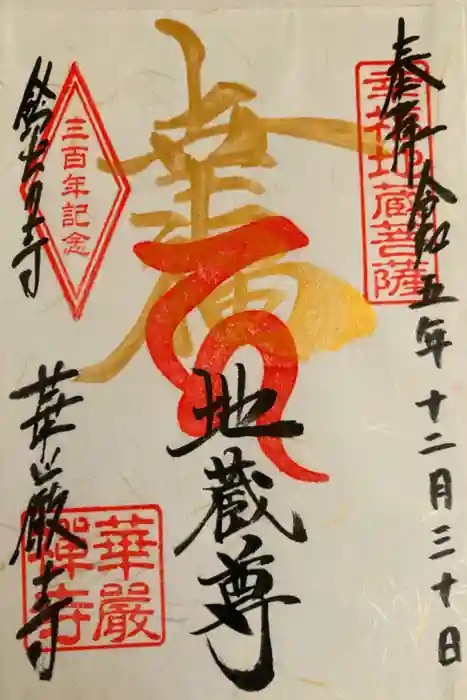 奉拝 令和五年十二月三十日
幸福地蔵菩薩
地蔵尊
三百年記念
鈴虫の寺
華厳寺
華嚴
禪寺